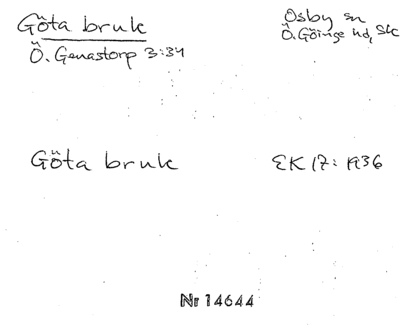 Göta bruk
Osby sn
Ö. Genastorp 3:34
Ö. Göinge hd, Sk
Göta bruk
EK 17: 1936
Nr 14644